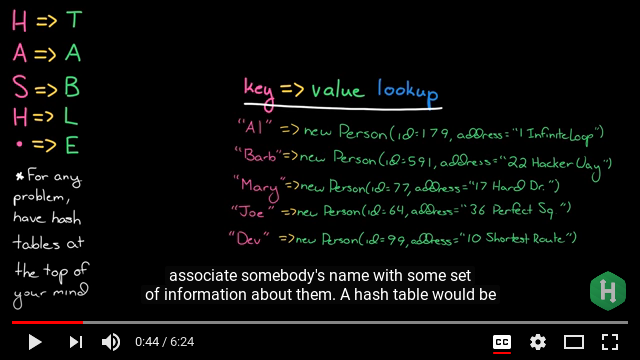 H => T
A => A
S => B
H => L
• => E
* For any
problem,
have hash
tables at
the top of
your mind
key => value lookup
"Al" => new Person(id=179, address="1 Infinite Loop")
"Barb" => new Person(id=591, address="22 Hacker Way")
"Mary" => new Person(id=77, address="17 Hard Dr.")
"Joe" => new Person(id=64, address="36 Perfect Sq")
"Dev" => new Person(id=99, address="10 Shortest Route")
associate somebody's name with some set
of information about them. A hash table would be
H
0:44 / 6:24
CC